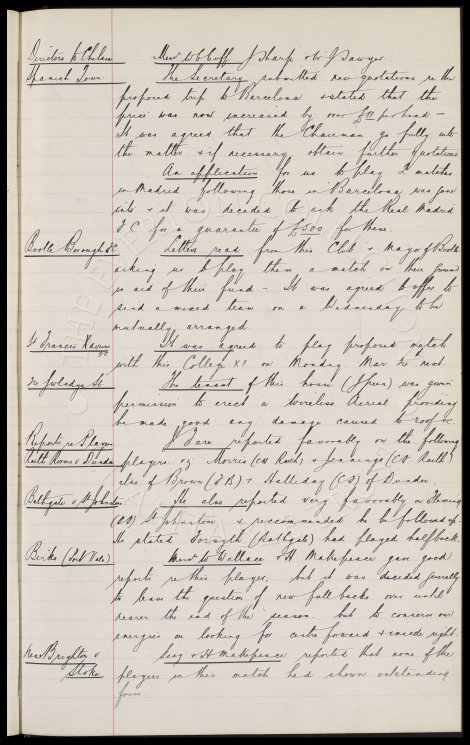 Directors to Chelsea Messrs W C Cuff J Sharp & W J Sawyer.
Spanish Tour The Secretary submitted new quotations re the
proposed trip to Barcelona & stated that the
price was now increased by over £11 per head —
It was agreed that the Chairman go fully into
the matter & if necessary obtain further quotations
An application for us to play 2 matches
in Madrid following those in Barcelona was gone
into & it was decided to ask the Real Madrid
F.C. for a guarantee of £500 for these.
Bootle Borough FC Letters read from this Club & Mayor of Bootle
asking us to play them a match on their ground
in aid of their fund — It was agreed to offer to
send a mixed team on a Wednesday to be
mutually arranged.
St Francis Xavier It was agreed to play proposed match
with this College XI on Monday Mar next.
Gwladys St. The tenant of this house (Spiers) was given
permission to erect a wireless Aerial providing
he made good any damage caused to roof &c
Reports re Players J Dare reported favorably on the following
Raith Rovers v Dundee players viz Morris (CH Raith) & Jennings (CF Raith)
also of Brown (LB) & Halliday (CF) of Dundee.
Bathgate v St Johnston He also reported very favorably on Fleming
St Johnston & recommended he be followed up.
He stated Forsyth (Bathgate) had played halfback.
Birks (Port Vale) Messrs W Wallace & H Makepeace gave good
reports re this player, but it was decided generally
to leave the question of new full backs over until
nearer the end of the season. but to conserve our
energies on looking for centre forward & inside right.
New Brighton v Secy & H Makepeace reported that none of the
Stoke players in this match had shown outstanding
form.